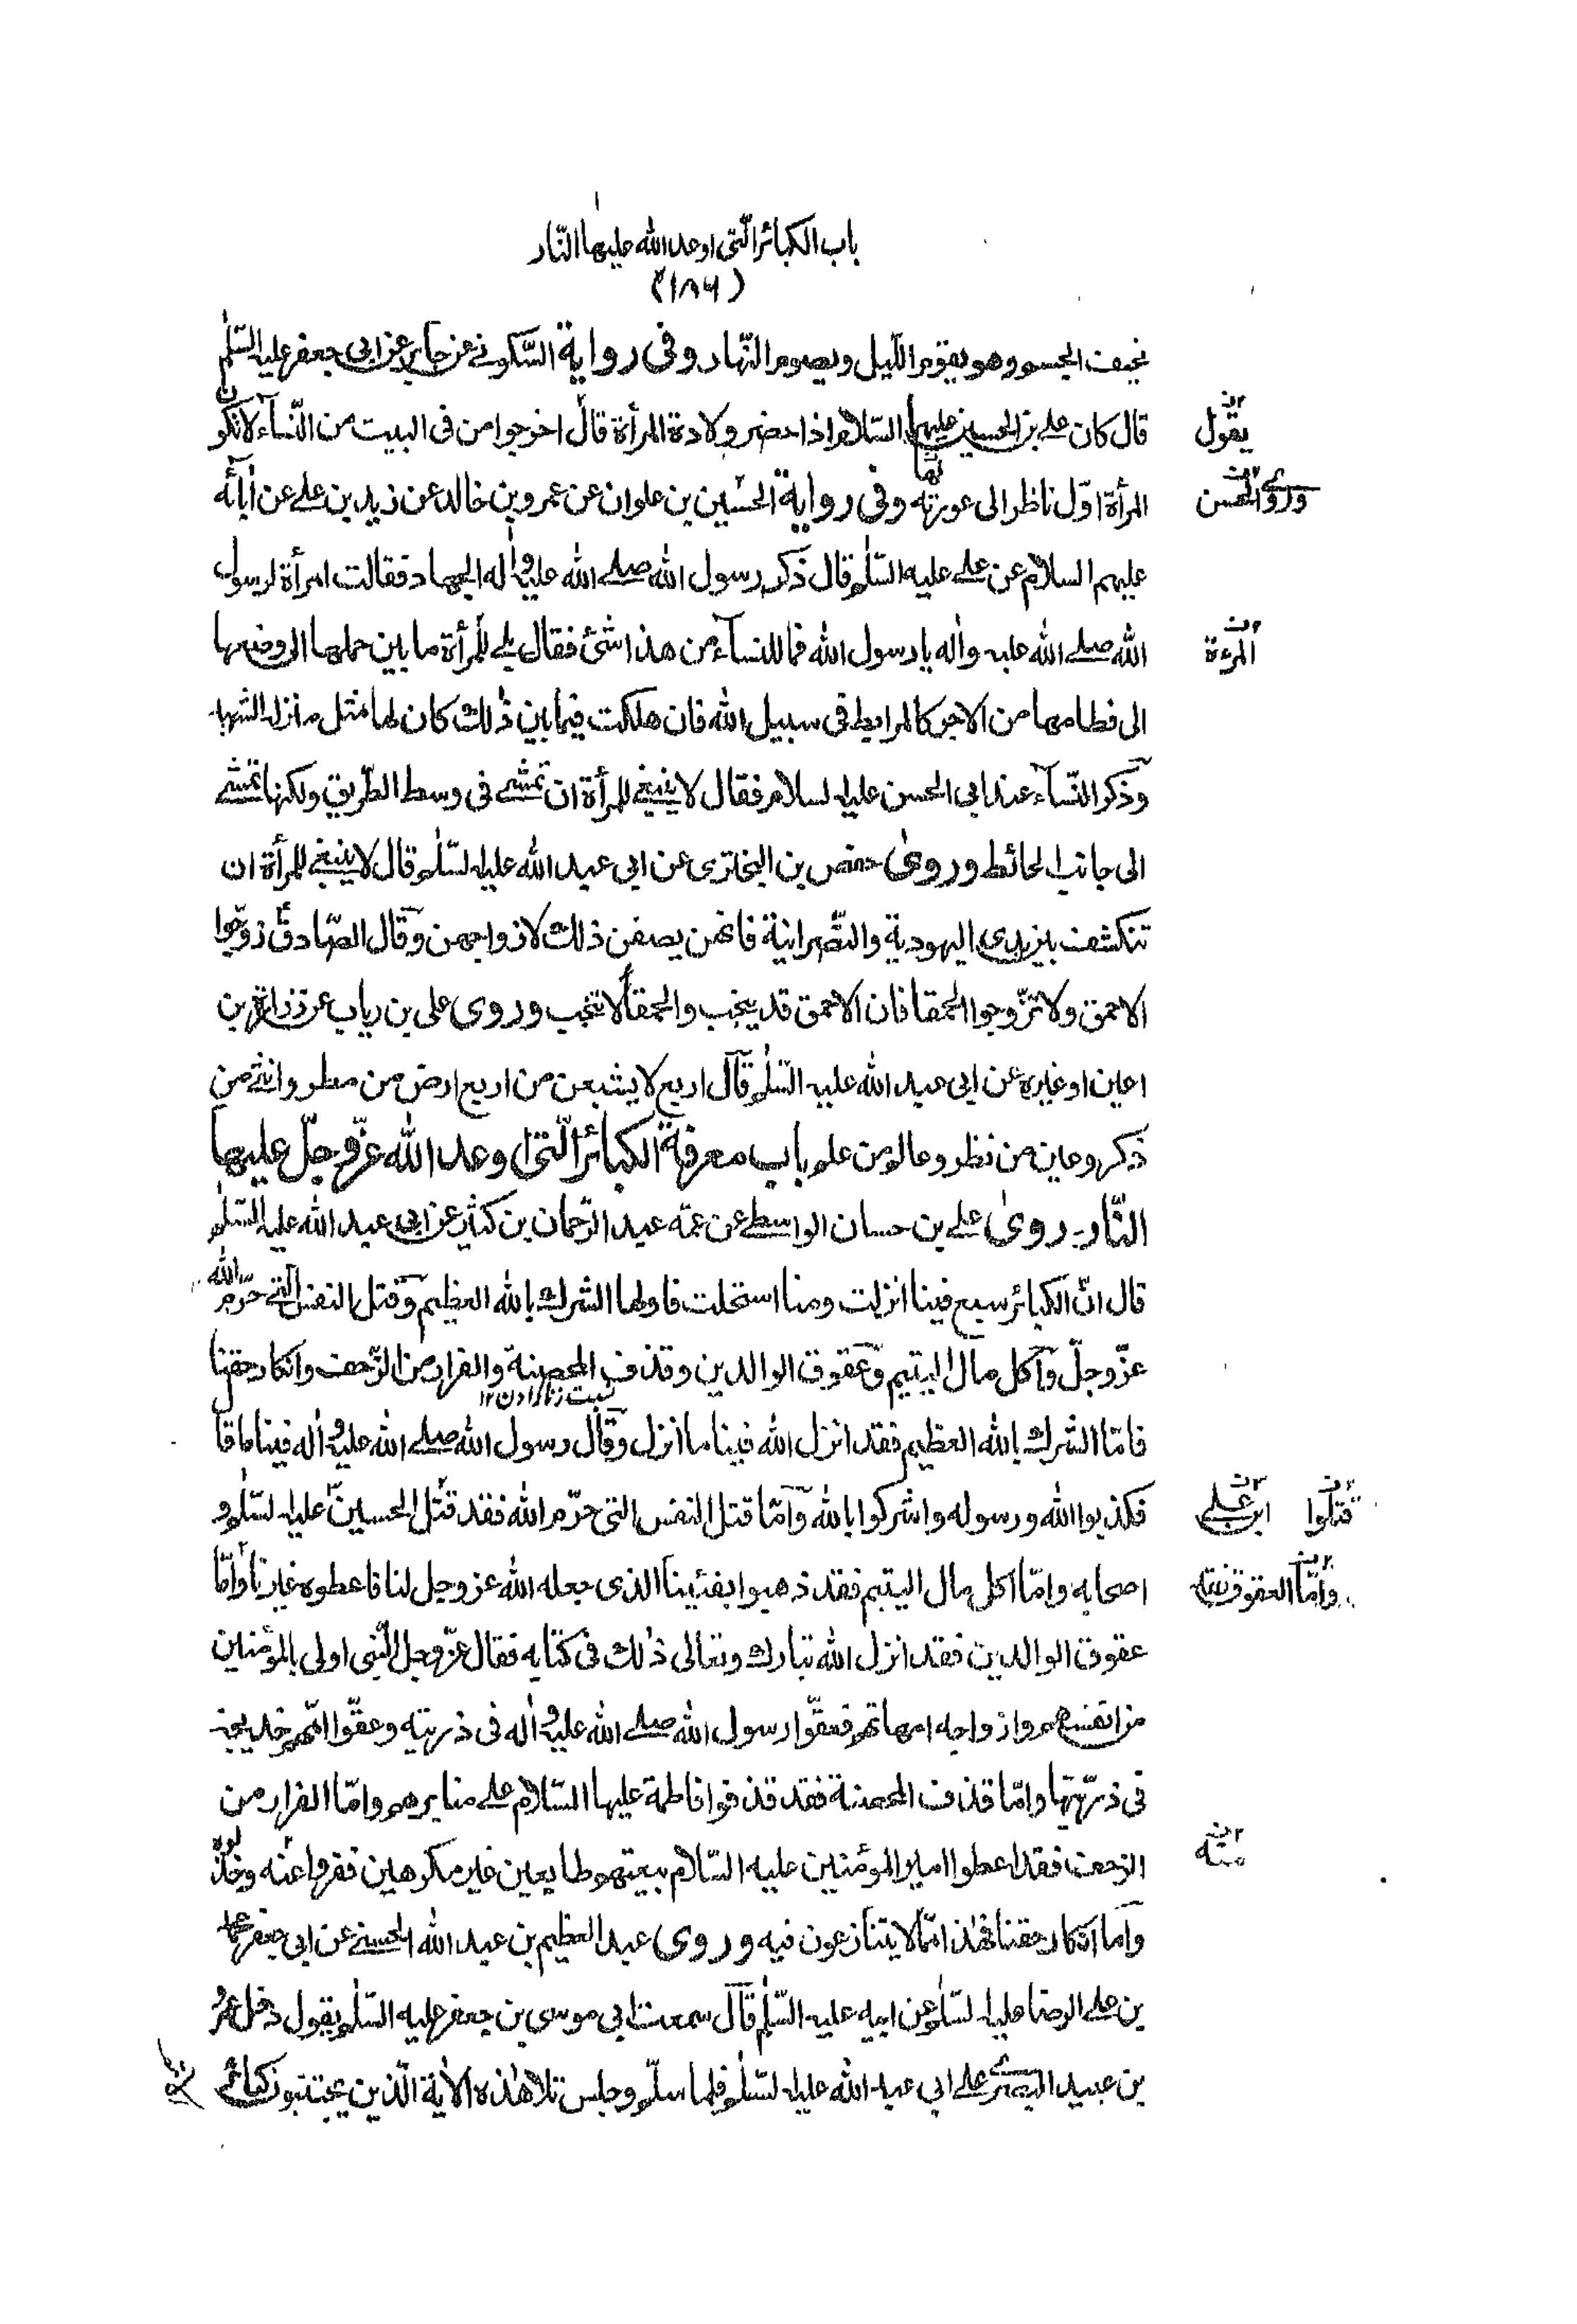 باب الكبائر الّتى اوعد الله عليها النّار
(١٨٦)
نحيف الجسم وهو يقوم اللّيل ويصوم النّهار وفى رواية السّكونى عن جابر عن ابى جعفر عليه السّلم
قال كان على بن الحسين عليهما السّلام اذا حضر ولادة المرأة قال اخرجوا من فى البيت من النّسآء لا تكون
يقول
المرأة اوّل ناظر الى عورته وفى رواية الحسين بن علوان عن عمرو بن خالد عن زيد بن على عن اٰبآئه
وروى الحسن
عليهم السلام عن على عليه السّلم قال ذكر رسول الله صلى الله عليه واٰله الجهاد فقالت امرأة لرسول
الله صلى الله عليه واٰله يا رسول الله فما للنسآء من هذا شئ فقال بلى للمرأة ما بين حملها الى وضعها
المرءة
الى فطامها من الاجر كالمرابط فى سبيل الله فان هلكت فيما بين ذٰلك كان لها مثل منزلة الشهيد
وذكر النّسآء عند ابى الحسن عليه السلام فقال لا ينبغى للمرأة ان تمشى فى وسط الطّريق ولكنها تمشى
الى جانب الحائط وروىٰ حفص بن البخترى عن ابى عبد الله عليه السّلم قال لا ينبغى للمرأة ان
تنكشف بين يدى اليهودية والنّصرانية فانهن يصفن ذلك لازواجهن وقال الصّادق زوّجوا
الاحمق ولا تزّوجوا الحمقا فان الاحمق قد ينجب والحمقآ لا تنجب وروى على بن رياب عن زرارة بن
اعين او غيره عن ابى عبد الله عليه السّلم قال اربع لا يشبعن من اربع ارض من مطر وانثى من
ذكر وعين من نظر وعالم من علم باب معرفة الكبائر الّتى اوعد الله عزّ وجلّ عليها
النّار روىٰ على بن حسان الواسطى عن عمّه عبد الرّحمان بن كثير عن ابى عبد الله عليه السّلم
قال انّ الكبائر سبع فينا انزلت ومنا استحلت فاولها الشرك بالله العظيم وقتل النفس الّتى حرّم الله
عزّ وجلّ وآكل مال اليتيم وعقوق الوالدين وقذف المحصنة والفرار من الزّحف وانكار حقنا
نسبت زنا دادن ١٢
فامّا الشرك بالله العظيم فقد انزل الله فينا ما انزل وقال رسول الله صلى الله عليه واٰله فينا ما قال
فكذبوا الله ورسوله واشركوا بالله وآمّا قتل النفس التى حرّم الله فقد قتل الحسين عليه السّلم و
قتلوا
ابن على
اصحابه وامّا اكل مال اليتيم فقد ذهبوا بفئينا الذى جعله الله عز وجل لنا فاعطوه غيرنا وامّا
وامّا العقوق فقد
عقوق الوالدين فقد انزل الله تبارك وتعالى ذٰلك فى كتابه فقال عزّ وجل النّبى اولى بالمؤمنين
من انفسهم وازواجه امهاتهم فعقّوا رسول الله صلى الله عليه واٰله فى ذريته وعقّوا امّهم خديجة
فى ذرّيّتها وامّا قذف المحصنة فقد قذفوا فاطمة عليها السّلام على منابرهم وامّا الفرار من
الزحف فقد اعطوا امير المؤمنين عليه السّلام بيعتهم طايعين غير مكرهين ففروا عنه وخذلوه
وآما انكار حقنا فهٰذا ممّا لا يتنازعون فيه وروى عبد العظيم بن عبد الله الحسنى عن ابى جعفر محمد
بن على الرضا عليه السّلم عن ابيه عليه السّلم قال سمعت ابى موسى بن جعفر عليه السّلم يقول دخل عمرو
بن عبيد البصرى على ابى عبد الله عليه السّلم فلما سلّم وجلس تلا هٰذه الاٰية الّذين يجتنبون كبائر